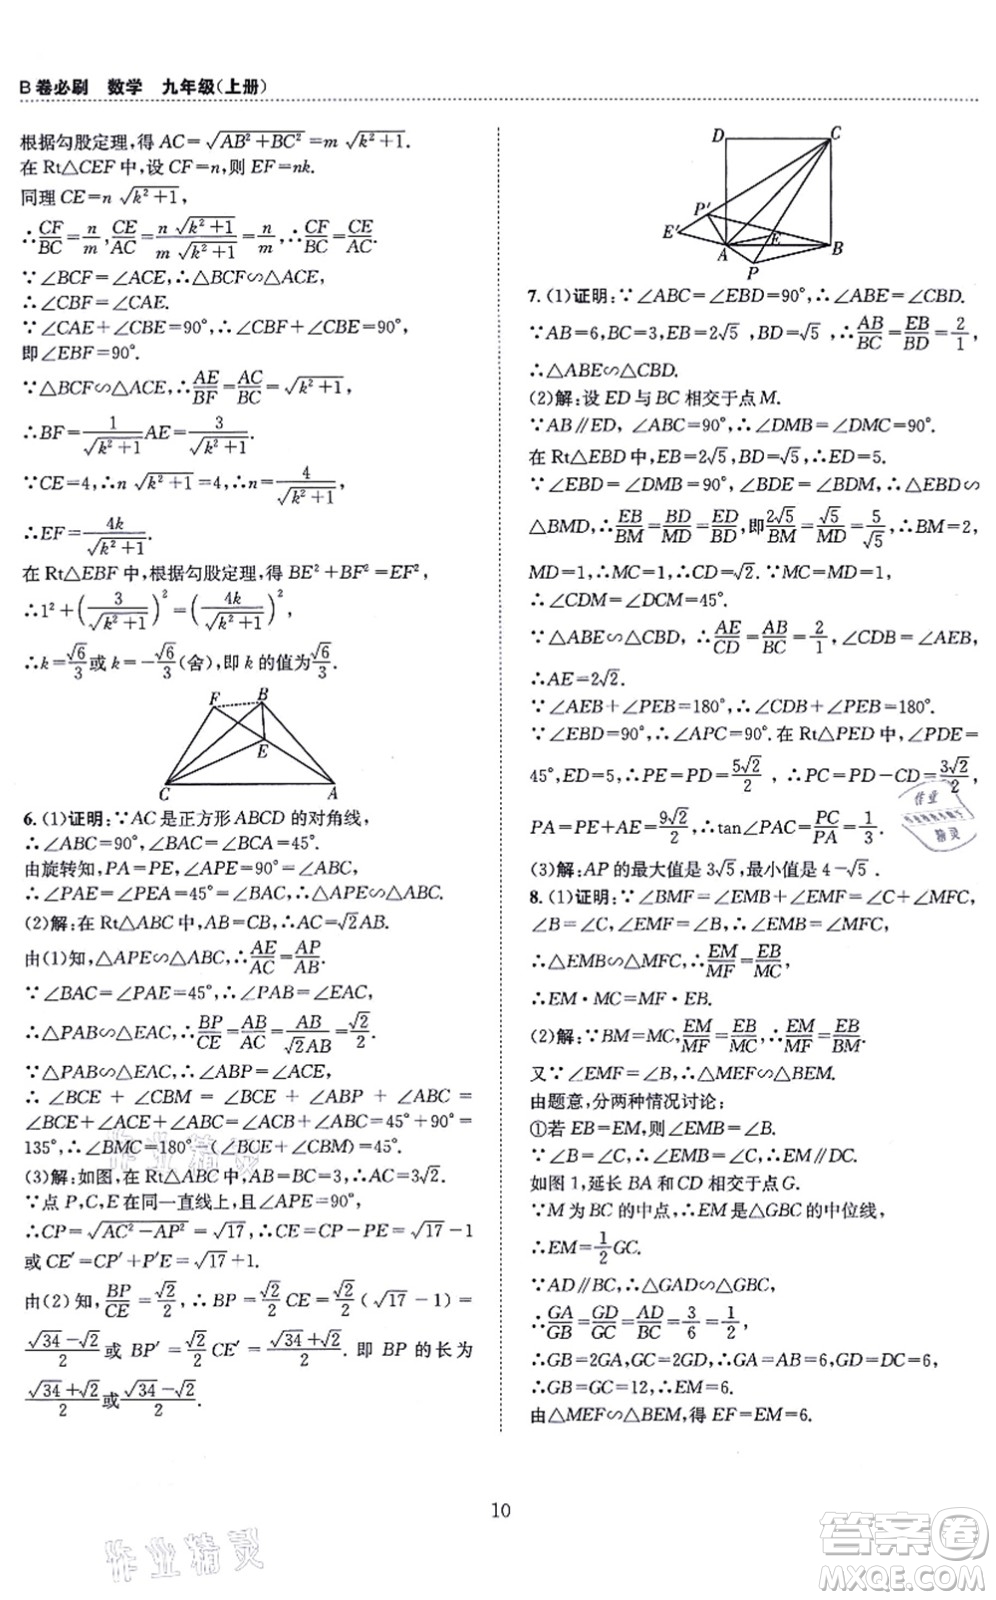 B卷必刷 数学 九年级(上册)
根据勾股定理,得 AC=√(AB²+BC²)=m√(k²+1).
在 Rt△CEF 中,设 CF=n,则 EF=nk.
同理 CE=n√(k²+1),
∴CF/BC=n/m,CE/AC=n√(k²+1)/m√(k²+1)=n/m,∴CF/BC=CE/AC.
∵∠BCF=∠ACE,∴△BCF∽△ACE,
∴∠CBF=∠CAE.
∵∠CAE+∠CBE=90°,∴∠CBF+∠CBE=90°,
即∠EBF=90°.
∵△BCF∽△ACE,∴AE/BF=AC/BC=√(k²+1),
∴BF=1/√(k²+1) AE=3/√(k²+1).
∵CE=4,∴n√(k²+1)=4,∴n=4/√(k²+1),
∴EF=4k/√(k²+1).
在 Rt△EBF 中,根据勾股定理,得 BE²+BF²=EF²,
∴1²+(3/√(k²+1))²=(4k/√(k²+1))²,
∴k=√6/3或 k=-√6/3(舍),即 k 的值为√6/3.
F B
E
C A
6. (1)证明:∵AC 是正方形 ABCD 的对角线,
∴∠ABC=90°,∠BAC=∠BCA=45°.
由旋转知,PA=PE,∠APE=90°=∠ABC,
∴∠PAE=∠PEA=45°=∠BAC,∴△APE∽△ABC.
(2)解:在 Rt△ABC 中,AB=CB,∴AC=√2AB.
由(1)知,△APE∽△ABC,∴AE/AC=AP/AB.
∵∠BAC=∠PAE=45°,∴∠PAB=∠EAC,
∴△PAB∽△EAC,∴BP/CE=AB/AC=AB/√2AB=√2/2.
∵△PAB∽△EAC,∴∠ABP=∠ACE,
∴∠BCE+∠CBM=∠BCE+∠ABP+∠ABC=
∠BCE+∠ACE+∠ABC=∠ACB+∠ABC=45°+90°=
135°,∴∠BMC=180°-(∠BCE+∠CBM)=45°.
(3)解:如图,在 Rt△ABC 中,AB=BC=3,∴AC=3√2.
∵点 P,C,E 在同一直线上,∠APE=90°,
∴CP=√(AC²-AP²)=√17,∴CE=CP-PE=√17-1
或 CE′=CP′+P′E=√17+1.
由(2)知,BP/CE=√2/2,∴BP=√2/2CE=√2/2(√17-1)=
(√34-√2)/2或 BP′=√2/2CE′=(√34+√2)/2. 即 BP 的长为
(√34+√2)/2或(√34-√2)/2.
D C
P′
E′ E
A B
P
7. (1)证明:∵∠ABC=∠EBD=90°,∴∠ABE=∠CBD.
∵AB=6,BC=3,EB=2√5,BD=√5,∴AB/BC=EB/BD=2/1,
∴△ABE∽△CBD.
(2)解:设 ED 与 BC 相交于点 M.
∵AB∥ED,∠ABC=90°,∴∠DMB=∠DMC=90°.
在 Rt△EBD 中,EB=2√5,BD=√5,∴ED=5.
∵∠EBD=∠DMB=90°,∠BDE=∠BDM,∴△EBD∽
△BMD,∴EB/BM=BD/MD=ED/BD,即2√5/BM=√5/MD=5/√5,∴BM=2,
MD=1,∴MC=1,∴CD=√2.∵MC=MD=1,
∴∠CDM=∠DCM=45°.
∵△ABE∽△CBD,∴AE/CD=AB/BC=2/1,∠CDB=∠AEB,
∴AE=2√2.
∵∠AEB+∠PEB=180°,∴∠CDB+∠PEB=180°.
∵∠EBD=90°,∴∠APC=90°.在 Rt△PED 中,∠PDE=
45°,ED=5,∴PE=PD=5√2/2,∴PC=PD-CD=3√2/2,
PA=PE+AE=9√2/2,∴tan∠PAC=PC/PA=1/3.
(3)解:AP 的最大值是 3√5,最小值是 4-√5.
8. (1)证明:∵∠BMF=∠EMB+∠EMF=∠C+∠MFC,
∠B=∠C=∠EMF,∴∠EMB=∠MFC,
∴△EMB∽△MFC,∴EM/MF=EB/MC,
∴EM·MC=MF·EB.
(2)解:∵BM=MC,EM/MF=EB/MC,∴EM/MF=EB/BM.
又∵∠EMF=∠B,∴△MEF∽△BEM.
由题意,分两种情况讨论:
①若 EB=EM,则∠EMB=∠B.
∵∠B=∠C,∴∠EMB=∠C,∴EM∥CD.
如图 1,延长 BA 和 CD 相交于点 G.
∵M 为 BC 的中点,∴EM 是△GBC 的中位线,
∴EM=1/2GC.
∵AD∥BC,∴△GAD∽△GBC,
∴GA/GB=GD/GC=AD/BC=3/6=1/2,
∴GB=2GA,GC=2GD,∴GA=AB=6,GD=DC=6,
∴GB=GC=12,∴EB=EM=6.
由△MEF∽△BEM,得 EF=EM=6.
10
作业精灵
作业精灵
答案圈
MXQE.COM